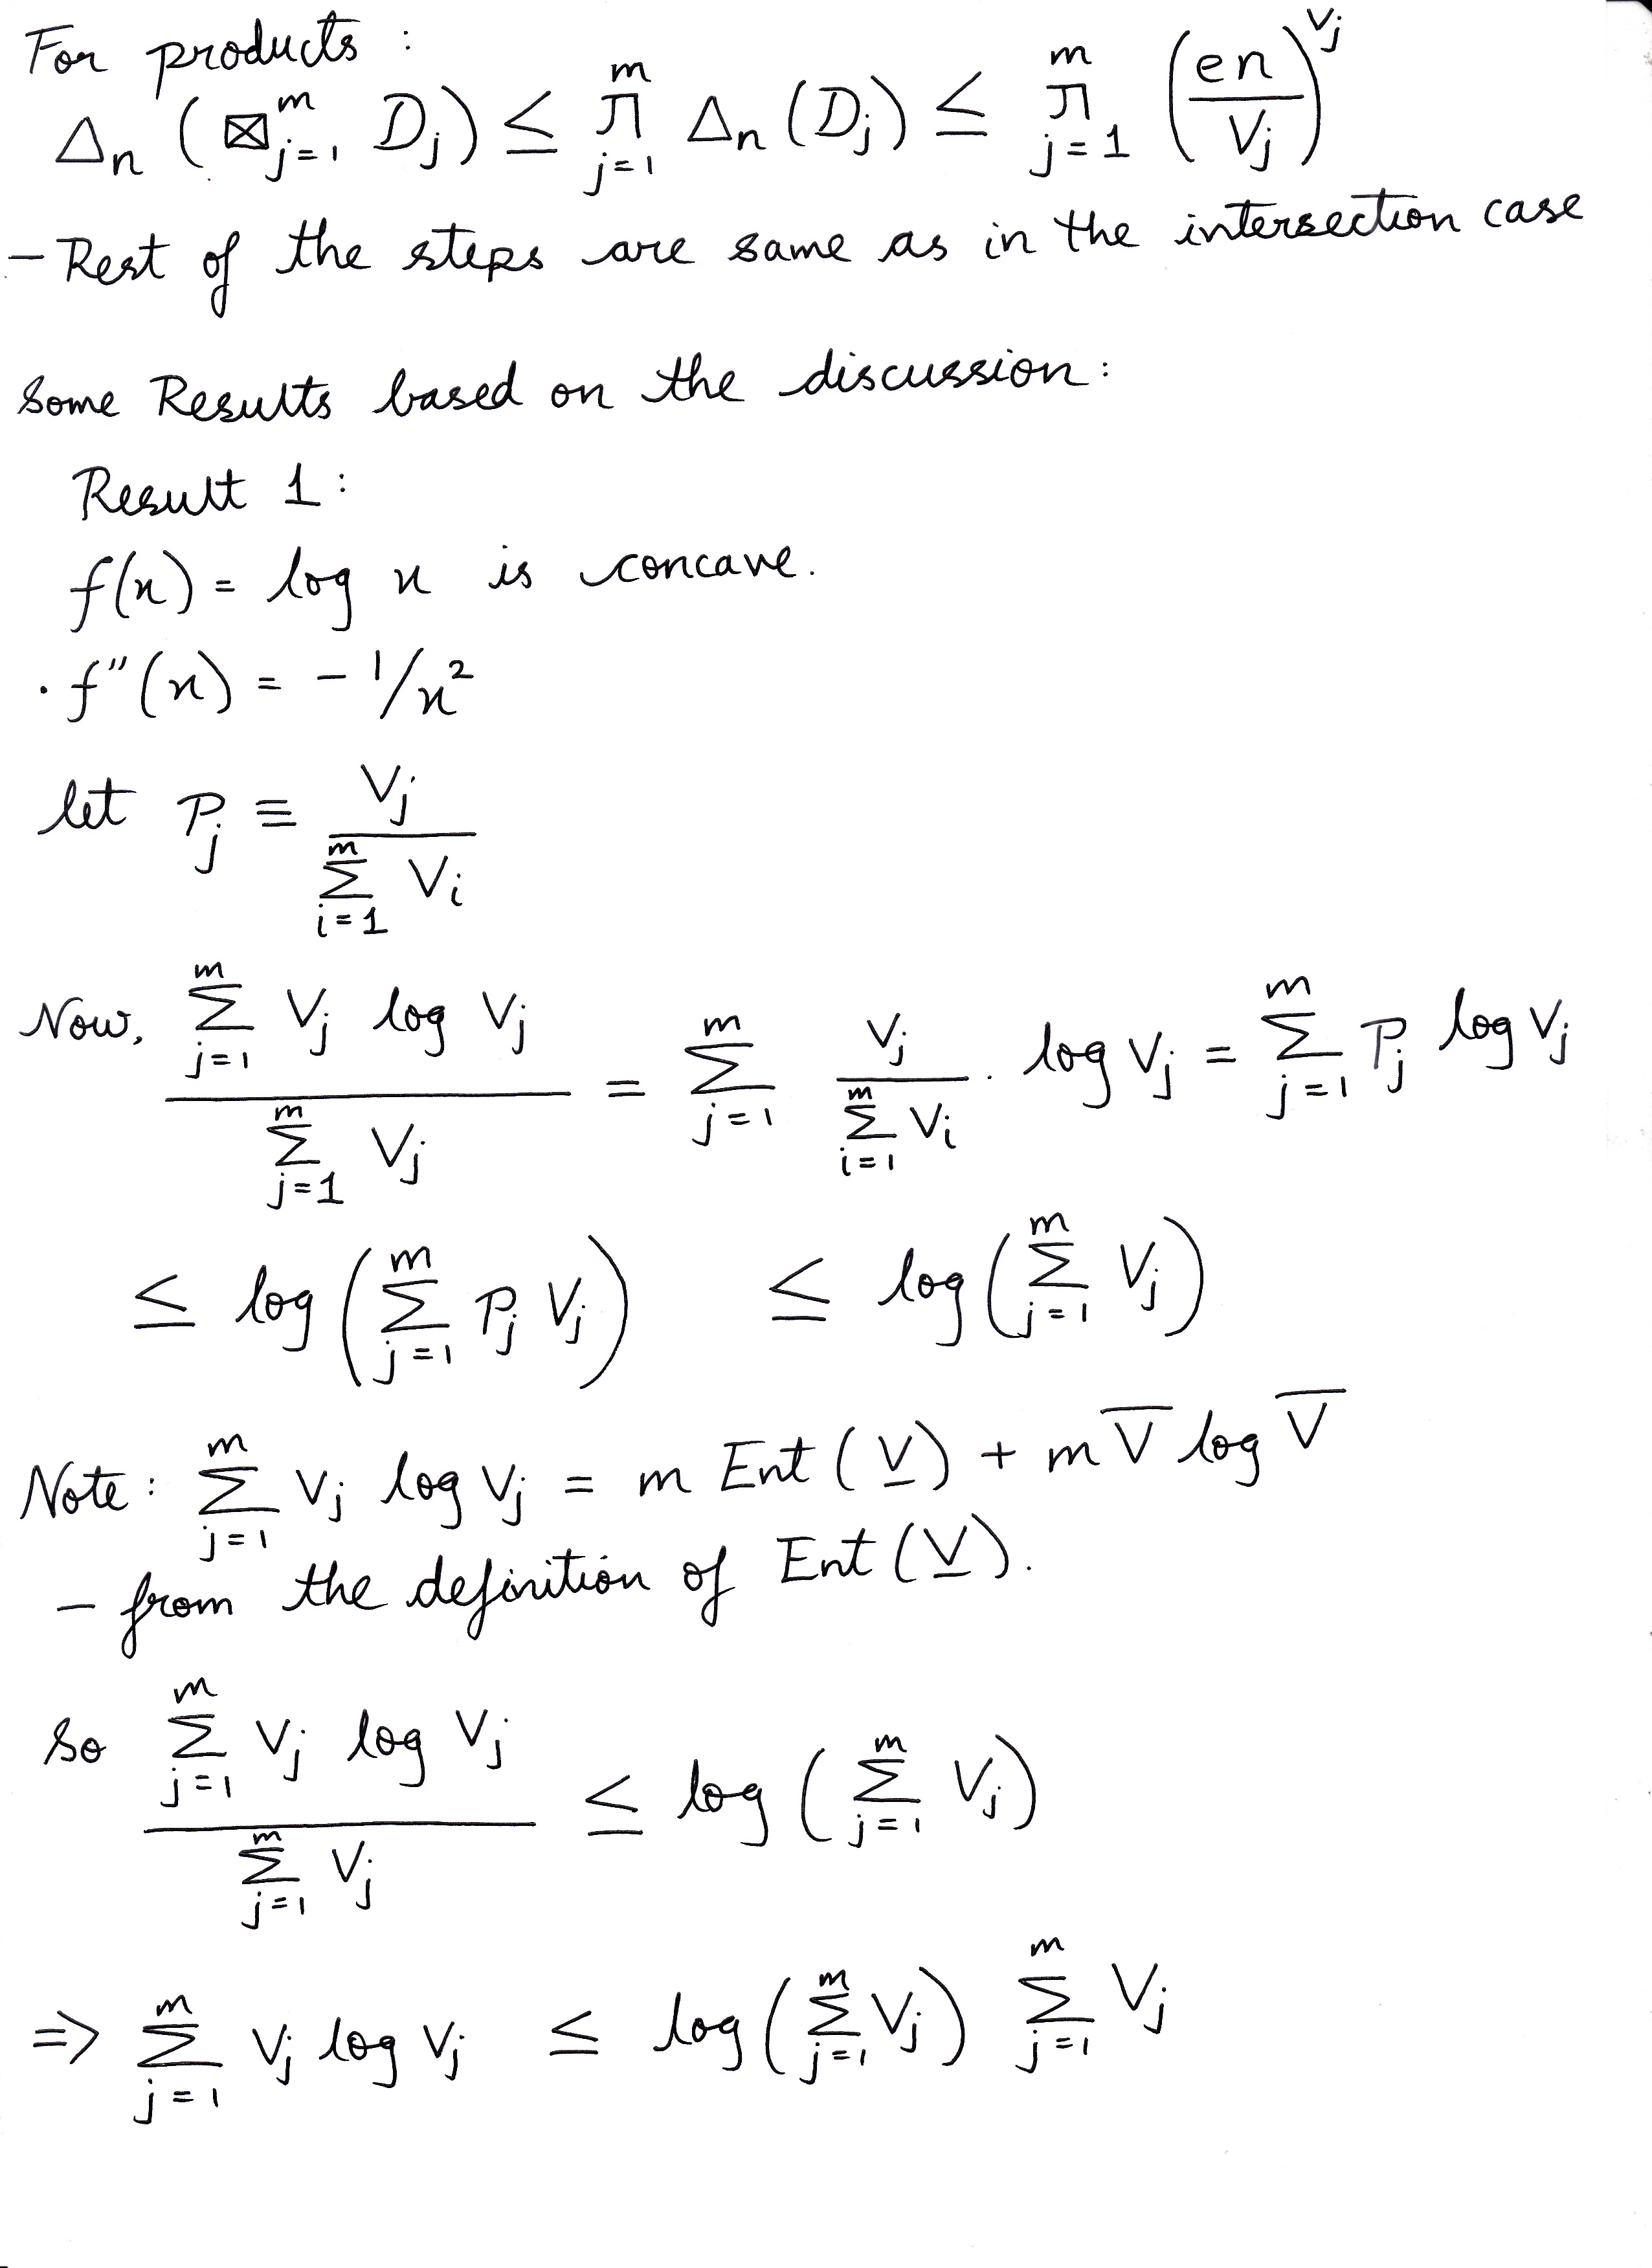 For products :
Δn ( ⊠_{j=1}^{m} D_j ) ≤ ∏_{j=1}^{m} Δn (D_j) ≤ ∏_{j=1}^{m} (en / V_j)^{V_j}
- Rest of the steps are same as in the intersection case
Some Results based on the discussion :
Result 1 :
f(x) = log x is concave.
· f''(x) = - 1/x²
let P_j ≡ V_j / ∑_{i=1}^{m} V_i
Now, ∑_{j=1}^{m} V_j log V_j / ∑_{j=1}^{m} V_j = ∑_{j=1}^{m} V_j / ∑_{i=1}^{m} V_i . log V_j = ∑_{j=1}^{m} P_j log V_j
≤ log ( ∑_{j=1}^{m} P_j V_j ) ≤ log ( ∑_{j=1}^{m} V_j )
Note : ∑_{j=1}^{m} V_j log V_j = m Ent ( V̲ ) + m V̅ log V̅
- from the definition of Ent ( V̲ ).
So ∑_{j=1}^{m} V_j log V_j / ∑_{j=1}^{m} V_j ≤ log ( ∑_{j=1}^{m} V_j )
=> ∑_{j=1}^{m} V_j log V_j ≤ log ( ∑_{j=1}^{m} V_j ) ∑_{j=1}^{m} V_j